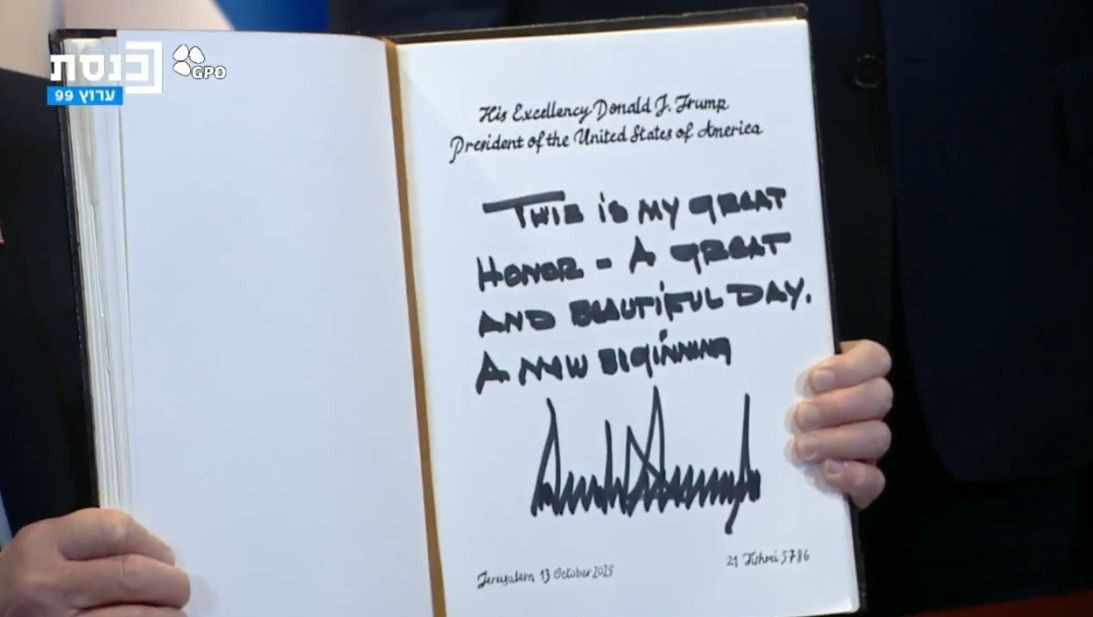 כנסת
GPO
ערוץ 99
His Excellency Donald J. Trump
President of the United States of America
THIS IS MY GREAT
HONOR - A GREAT
AND BEAUTIFUL DAY.
A NEW BIGINNING
Jerusalem 13 October 2025
21 Tishrei 5786